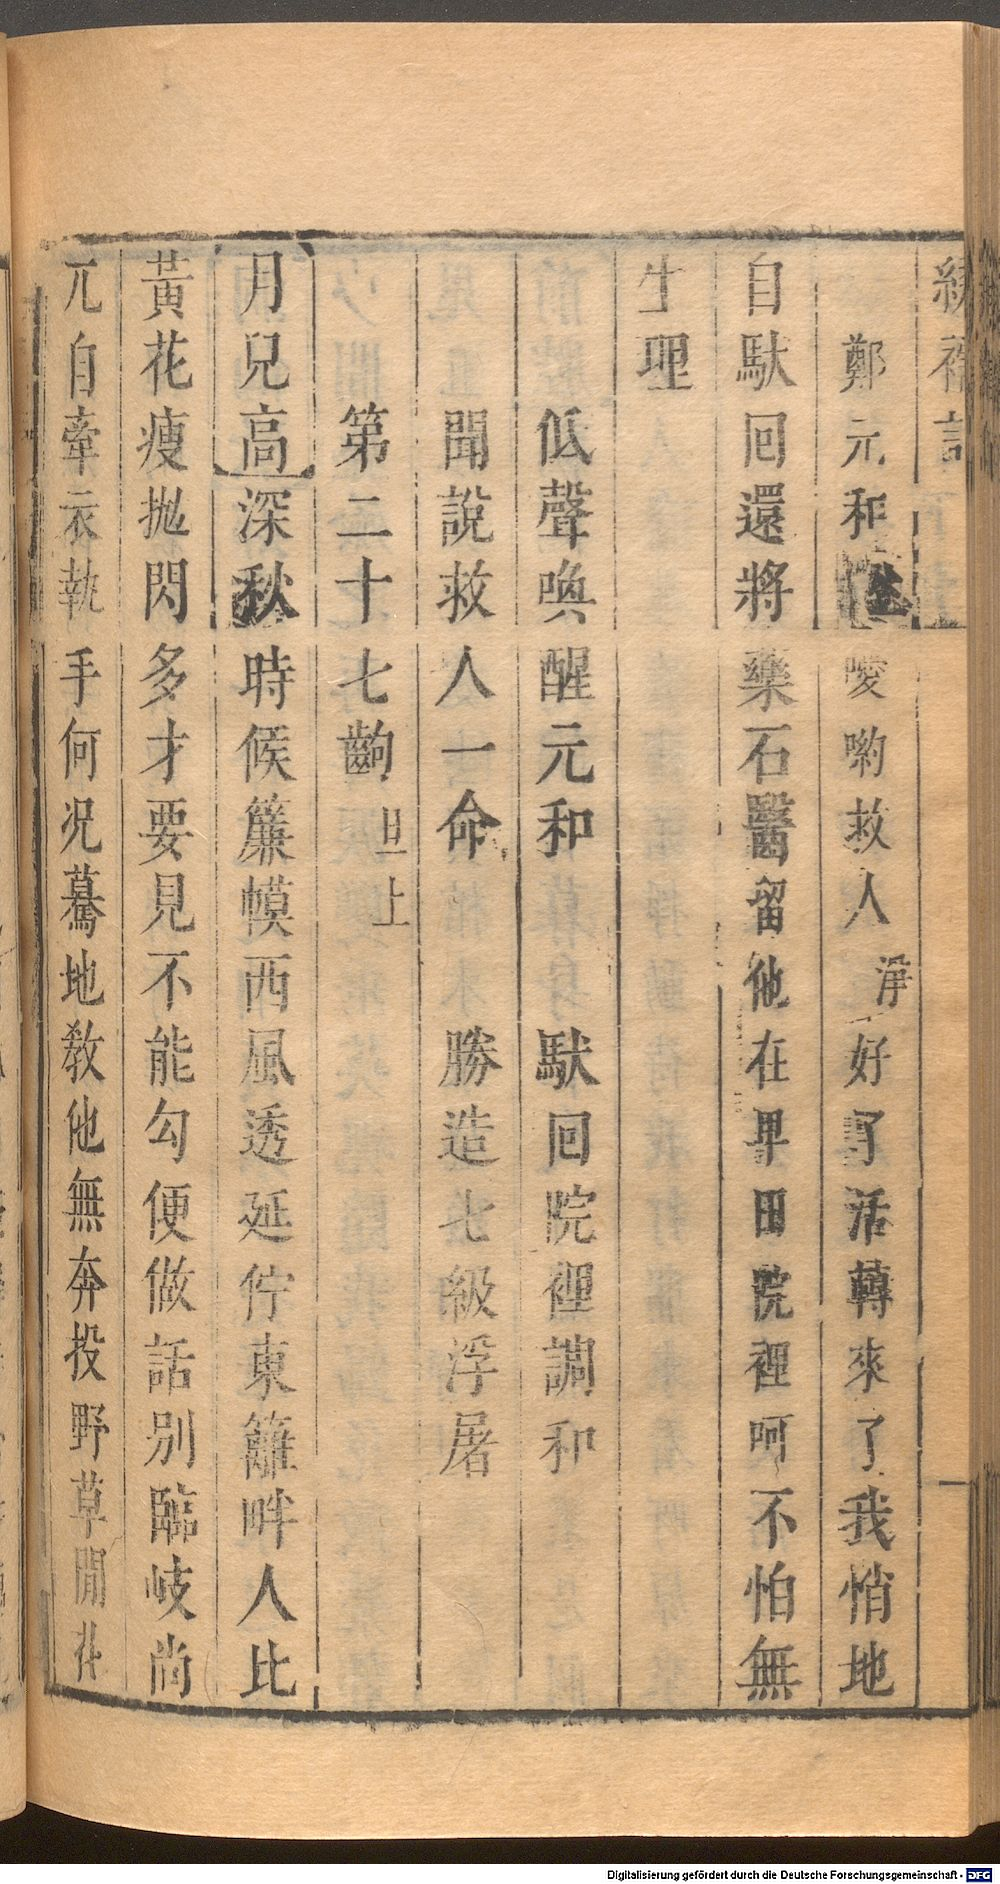 繡襦記
鄭元和 噯喲救人 淨 好了活轉來了我悄地
自馱回還將藥石醫留他在卑田院裡呵不怕無
生理
低聲喚醒元和 馱回院裡調和
聞說救人一命 勝造七級浮屠
第二十七齣 旦上
月兒高 深秋時候簾幙西風透延佇東籬畔人比
黃花瘦拋閃多才要見不能勾便做話別臨岐尚
兀自牽衣執手何况驀地教他無奔投野草閒花
Digitalisierung gefördert durch die Deutsche Forschungsgemeinschaft - DFG